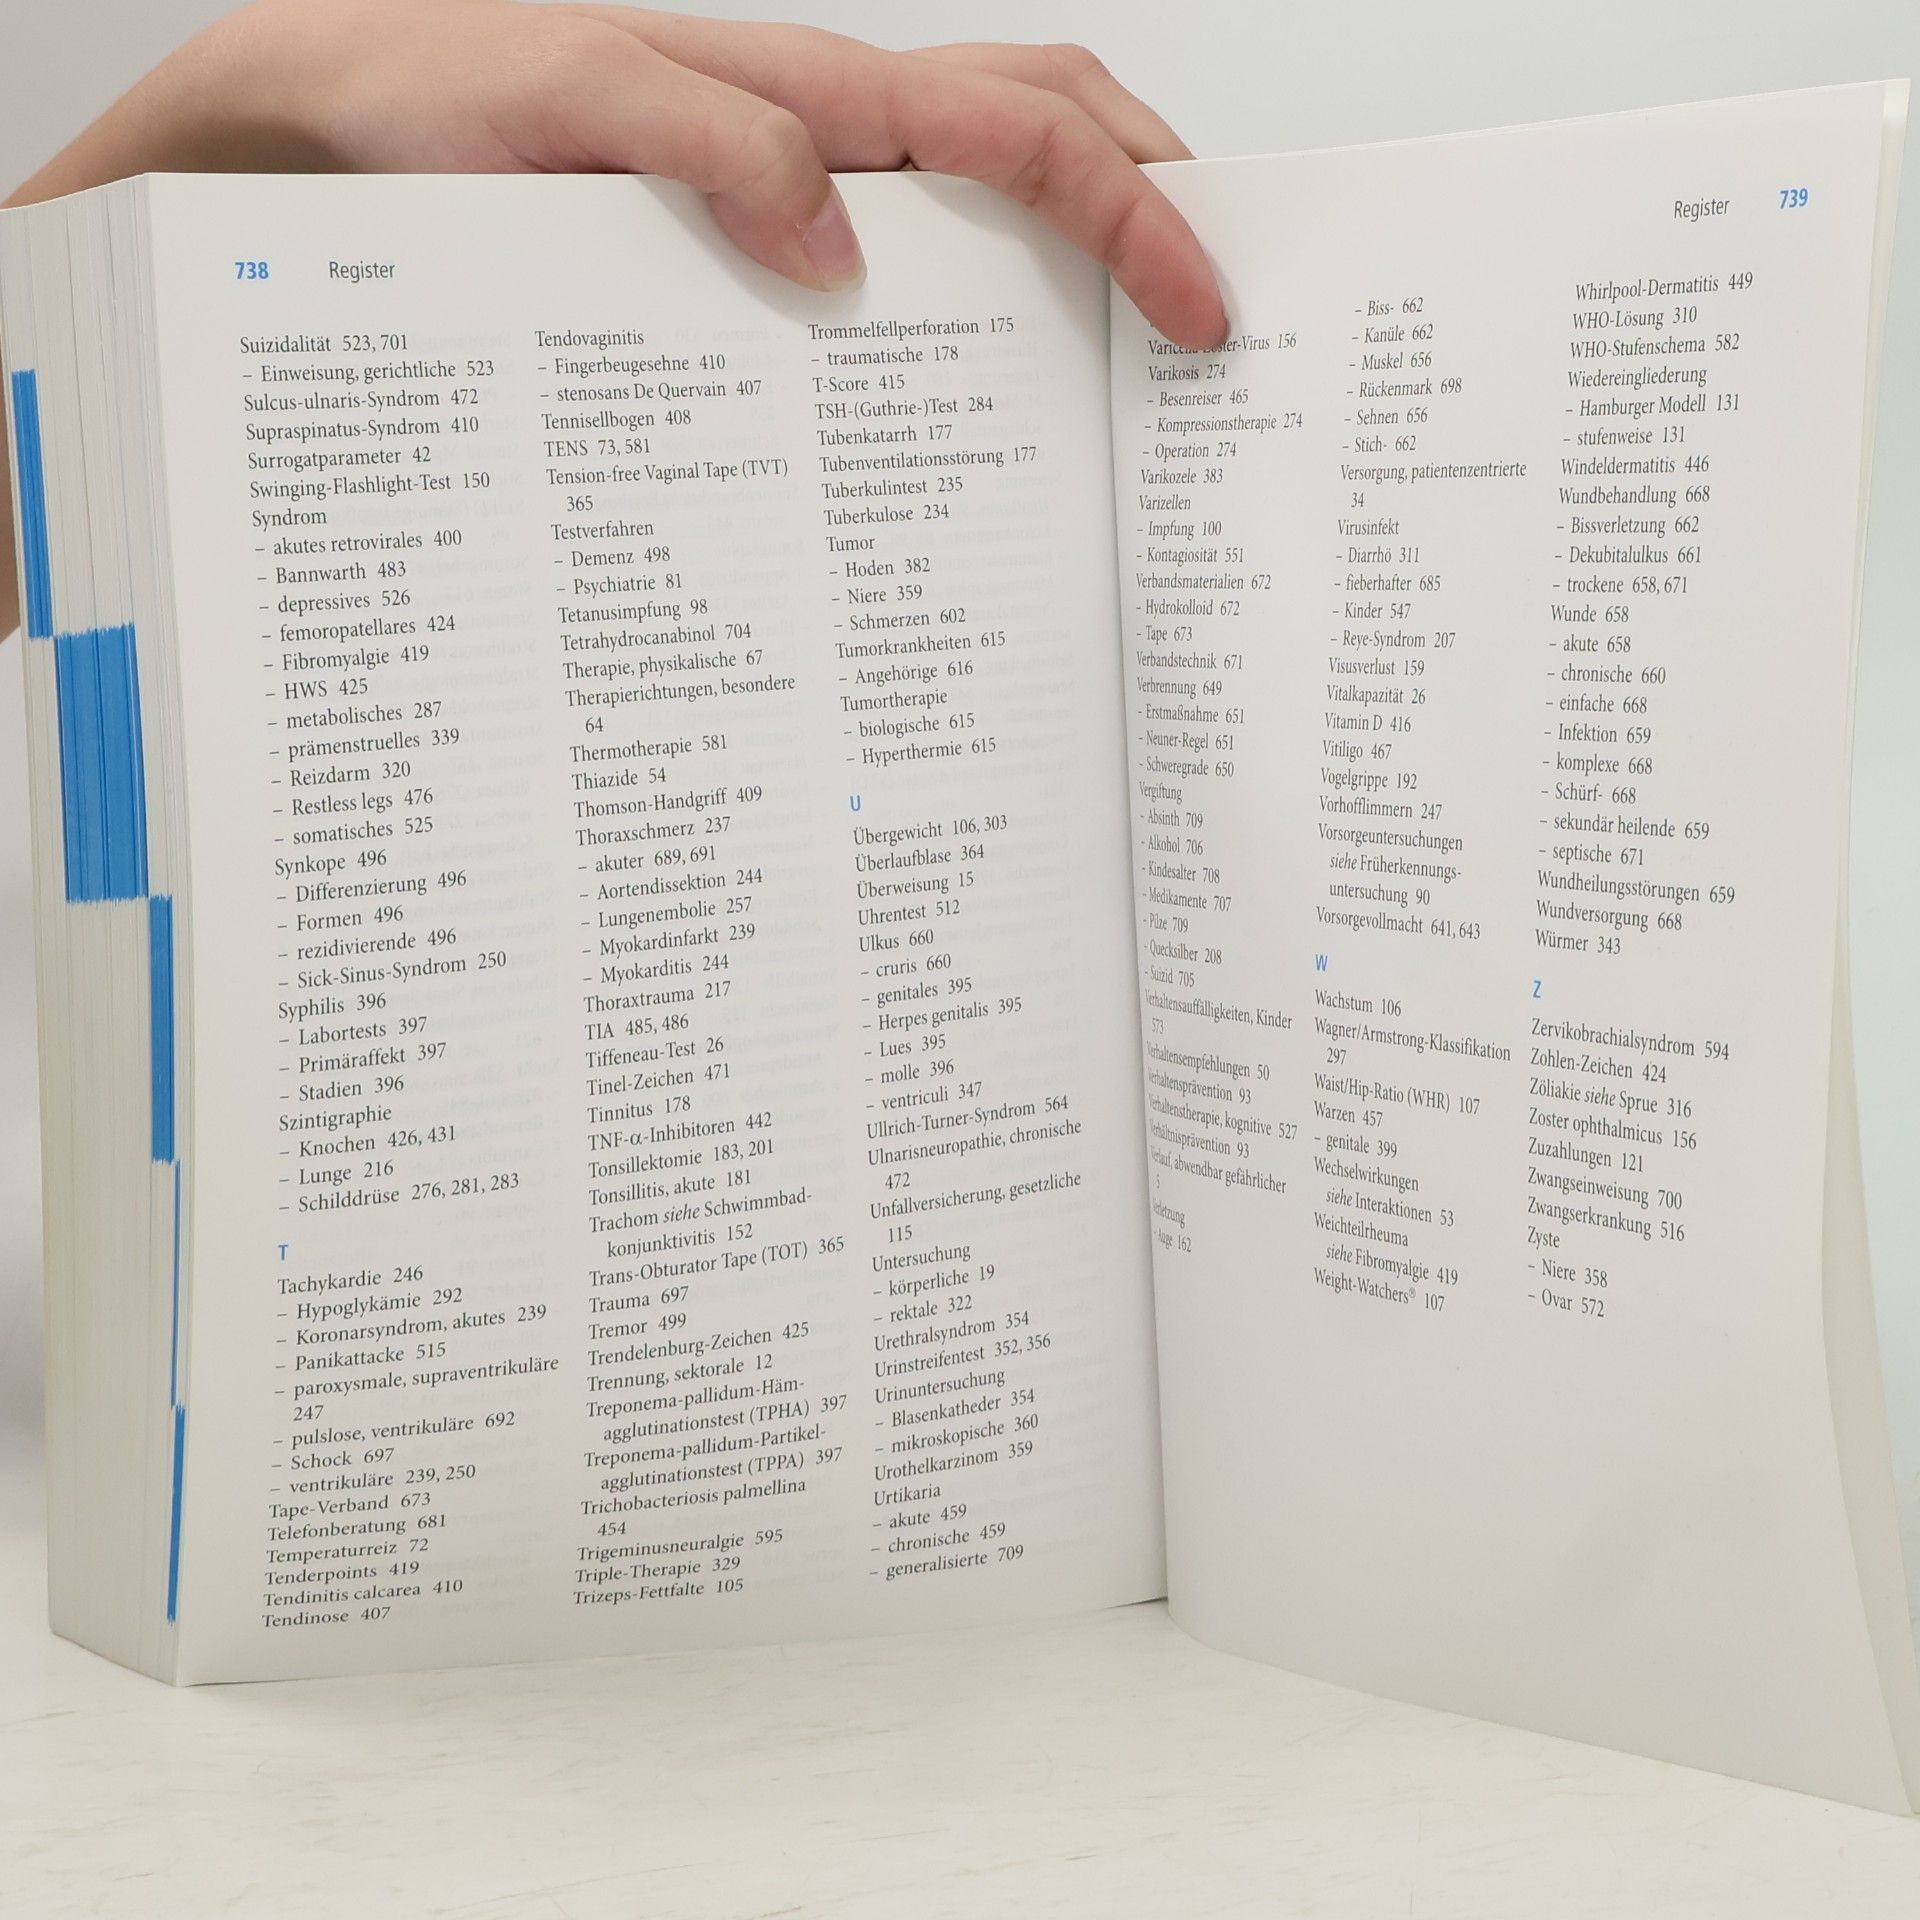 738 Register
Suizidalität 523, 701
– Einweisung, gerichtliche 523
Sulcus-ulnaris-Syndrom 472
Supraspinatus-Syndrom 410
Surrogatparameter 42
Swinging-Flashlight-Test 150
Syndrom
– akutes retrovirales 400
– Bannwarth 483
– depressives 526
– femoropatellares 424
– Fibromyalgie 419
– HWS 425
– metabolisches 287
– prämenstruelles 339
– Reizdarm 320
– Restless legs 476
– somatisches 525
Synkope 496
– Differenzierung 496
– Formen 496
– rezidivierende 496
– Sick-Sinus-Syndrom 250
Syphilis 396
– Labortests 397
– Primäraffekt 397
– Stadien 396
Szintigraphie
– Knochen 426, 431
– Lunge 216
– Schilddrüse 276, 281, 283
T
Tachykardie 246
– Hypoglykämie 292
– Koronarsyndrom, akutes 239
– Panikattacke 515
– paroxysmale, supraventrikuläre
247
– pulslose, ventrikuläre 692
– Schock 697
– ventrikuläre 239, 250
Tape-Verband 673
Telefonberatung 681
Temperaturreiz 72
Tenderpoints 419
Tendinitis calcarea 410
Tendinose 407
Tendovaginitis
– Fingerbeugesehne 410
– stenosans De Quervain 407
Tennisellbogen 408
TENS 73, 581
Tension-free Vaginal Tape (TVT)
365
Testverfahren
– Demenz 498
– Psychiatrie 81
Tetanusimpfung 98
Tetrahydrocanabinol 704
Therapie, physikalische 67
Therapierichtungen, besondere
64
Thermotherapie 581
Thiazide 54
Thomson-Handgriff 409
Thoraxschmerz 237
– akuter 689, 691
– Aortendissektion 244
– Lungenembolie 257
– Myokardinfarkt 239
– Myokarditis 244
Thoraxtrauma 217
TIA 485, 486
Tiffeneau-Test 26
Tinel-Zeichen 471
Tinnitus 178
TNF-α-Inhibitoren 442
Tonsillektomie 183, 201
Tonsillitis, akute 181
Trachom siehe Schwimmbad-
konjunktivitis 152
Trans-Obturator Tape (TOT) 365
Trauma 697
Tremor 499
Trendelenburg-Zeichen 425
Trennung, sektorale 12
Treponema-pallidum-Häm-
agglutinationstest (TPHA) 397
Treponema-pallidum-Partikel-
agglutinationstest (TPPA) 397
Trichobacteriosis palmellina
454
Trigeminusneuralgie 595
Triple-Therapie 329
Trizeps-Fettfalte 105
Trommelfellperforation 175
– traumatische 178
T-Score 415
TSH-(Guthrie-)Test 284
Tubenkatarrh 177
Tubenventilationsstörung 177
Tuberkulintest 235
Tuberkulose 234
Tumor
– Hoden 382
– Niere 359
– Schmerzen 602
Tumorkrankheiten 615
– Angehörige 616
Tumortherapie
– biologische 615
– Hyperthermie 615
U
Übergewicht 106, 303
Überlaufblase 364
Überweisung 15
Uhrentest 512
Ulkus 660
– cruris 660
– genitales 395
– Herpes genitalis 395
– Lues 395
– molle 396
– ventriculi 347
Ullrich-Turner-Syndrom 564
Ulnarisneuropathie, chronische
472
Unfallversicherung, gesetzliche
115
Untersuchung
– körperliche 19
– rektale 322
Urethralsyndrom 354
Urinstreifentest 352, 356
Urinuntersuchung
– Blasenkatheder 354
– mikroskopische 360
Urothelkarzinom 359
Urtikaria
– akute 459
– chronische 459
– generalisierte 709
Register 739
-Virus 156
Varikosis 274
– Besenreiser 465
– Kompressionstherapie 274
– Operation 274
Varikozele 383
Varizellen
– Impfung 100
– Kontagiosität 551
Verbandsmaterialien 672
– Hydrokolloid 672
– Tape 673
Verbandstechnik 671
Verbrennung 649
– Erstmaßnahme 651
– Neuner-Regel 651
– Schweregrade 650
Vergiftung
– Absinth 709
– Alkohol 706
– Kindesalter 708
– Medikamente 707
– Pilze 709
– Quecksilber 208
– Suizid 705
Verhaltensauffälligkeiten, Kinder
573
Verhaltensempfehlungen 50
Verhaltensprävention 93
Verhaltenstherapie, kognitive 527
Verhältnisprävention 93
Verlauf, abwendbar gefährlicher
5
Verletzung
– Auge 162
– Biss- 662
– Kanüle 662
– Muskel 656
– Rückenmark 698
– Sehnen 656
– Stich- 662
Versorgung, patientenzentrierte
34
Virusinfekt
– Diarrhö 311
– fieberhafter 685
– Kinder 547
– Reye-Syndrom 207
Visusverlust 159
Vitalkapazität 26
Vitamin D 416
Vitiligo 467
Vogelgrippe 192
Vorhofflimmern 247
Vorsorgeuntersuchungen
siehe Früherkennungs-
untersuchung 90
Vorsorgevollmacht 641, 643
W
Wachstum 106
Wagner/Armstrong-Klassifikation
297
Waist/Hip-Ratio (WHR) 107
Warzen 457
– genitale 399
Wechselwirkungen
siehe Interaktionen 53
Weichteilrheuma
siehe Fibromyalgie 419
Weight-Watchers® 107
Whirlpool-Dermatitis 449
WHO-Lösung 310
WHO-Stufenschema 582
Wiedereingliederung
– Hamburger Modell 131
– stufenweise 131
Windeldermatitis 446
Wundbehandlung 668
– Bissverletzung 662
– Dekubitalulkus 661
– trockene 658, 671
Wunde 658
– akute 658
– chronische 660
– einfache 668
– Infektion 659
– komplexe 668
– Schürf- 668
– sekundär heilende 659
– septische 671
Wundheilungsstörungen 659
Wundversorgung 668
Würmer 343
Z
Zervikobrachialsyndrom 594
Zohlen-Zeichen 424
Zöliakie siehe Sprue 316
Zoster ophthalmicus 156
Zuzahlungen 121
Zwangseinweisung 700
Zwangserkrankung 516
Zyste
– Niere 358
– Ovar 572